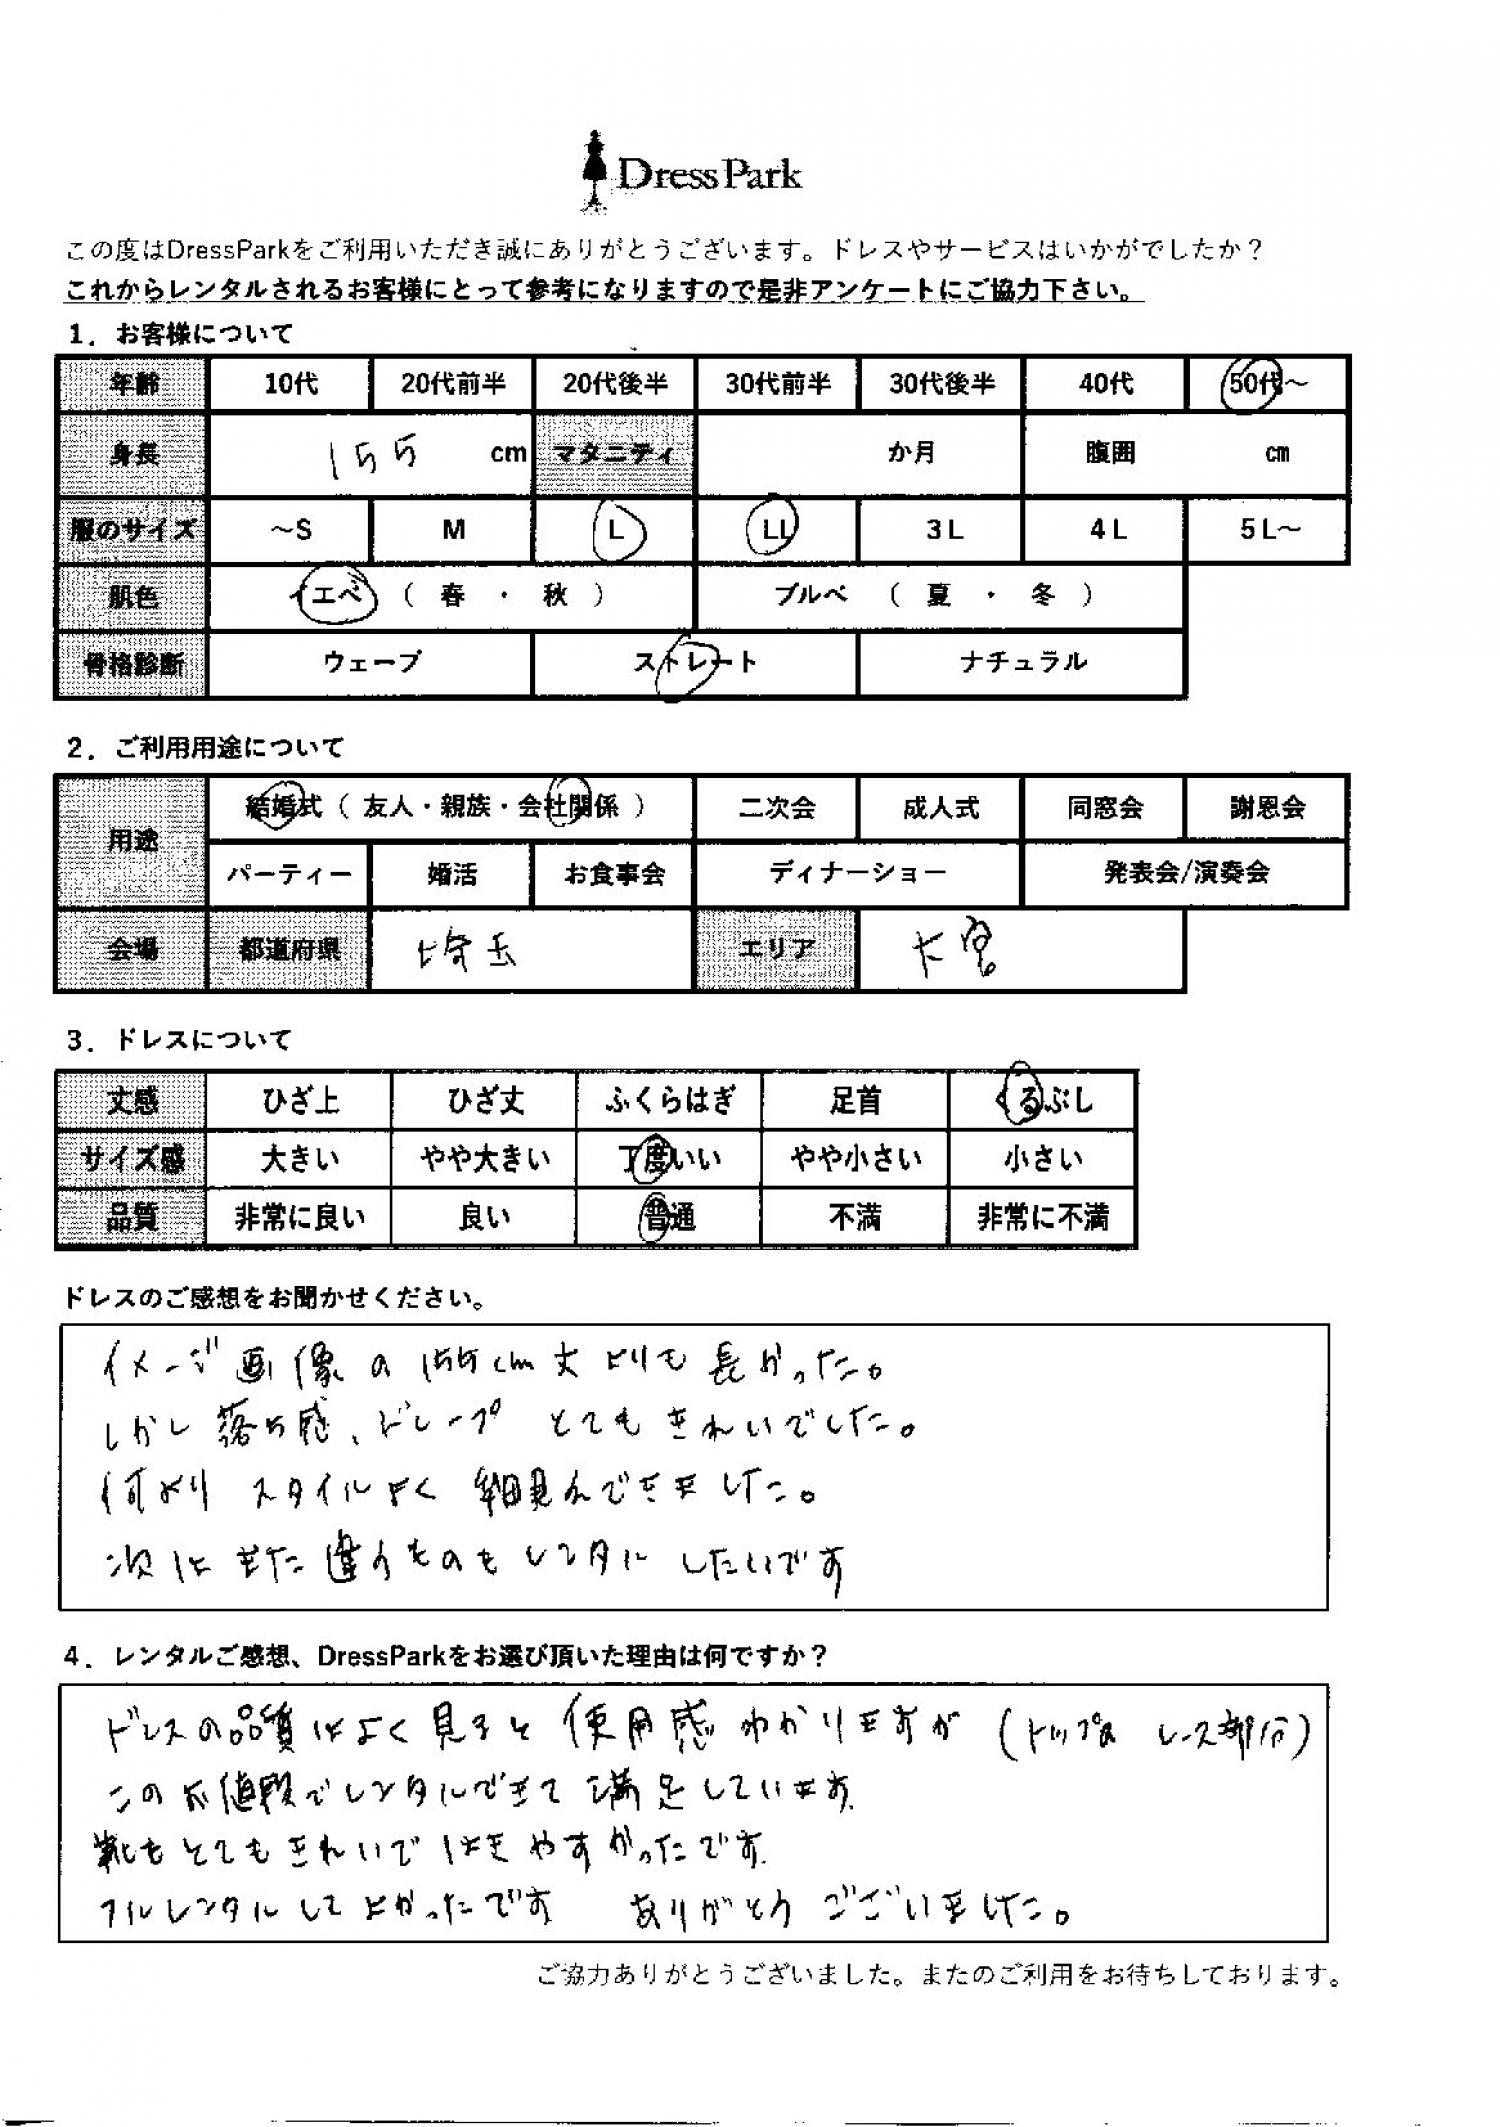 DressPark
この度はDressParkをご利用いただき誠にありがとうございます。ドレスやサービスはいかがでしたか？
これからレンタルされるお客様にとって参考になりますので是非アンケートにご協力下さい。
1．お客様について
年齢 10代 20代前半 20代後半 30代前半 30代後半 40代 50代～
身長 155 cm マタニティ か月 腹囲 cm
服のサイズ ～S M L LL 3L 4L 5L～
肌色 イエベ （ 春 ・ 秋 ） ブルベ （ 夏 ・ 冬 ）
骨格診断 ウェーブ ストレート ナチュラル
2．ご利用用途について
用途 結婚式（ 友人・親族・会社関係 ） 二次会 成人式 同窓会 謝恩会
パーティー 婚活 お食事会 ディナーショー 発表会/演奏会
会場 都道府県 埼玉 エリア 大宮
3．ドレスについて
丈感 ひざ上 ひざ丈 ふくらはぎ 足首 くるぶし
サイズ感 大きい やや大きい 丁度いい やや小さい 小さい
品質 非常に良い 良い 普通 不満 非常に不満
ドレスのご感想をお聞かせください。
イメージ画像の155cm丈よりも長かった。
しかし落ち感、ドレープ とてもきれいでした。
何より スタイルよく 細見えできました。
次はまた違うものもレンタルしたいです
4．レンタルご感想、DressParkをお選び頂いた理由は何ですか？
ドレスの品質はよく見ると使用感わかりますが（トップのレース部分）
このお値段でレンタルできて満足しています。
靴もとてもきれいではきやすかったです。
フルレンタルしてよかったです ありがとうございました。
ご協力ありがとうございました。またのご利用をお待ちしております。